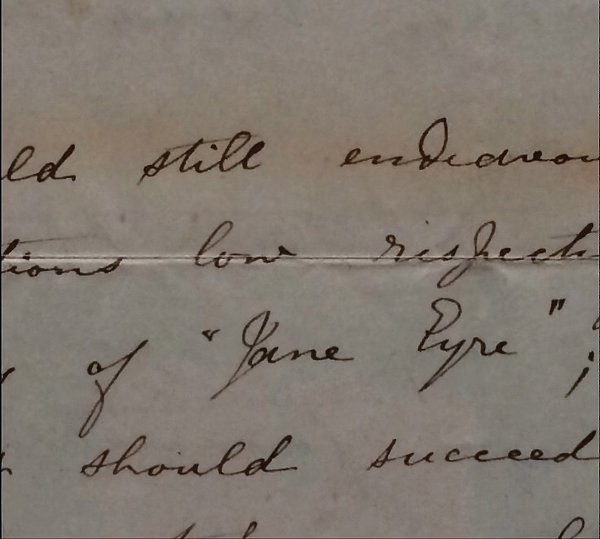 ld still endeavou
tions low respecti
of "Jane Eyre";
should succeed